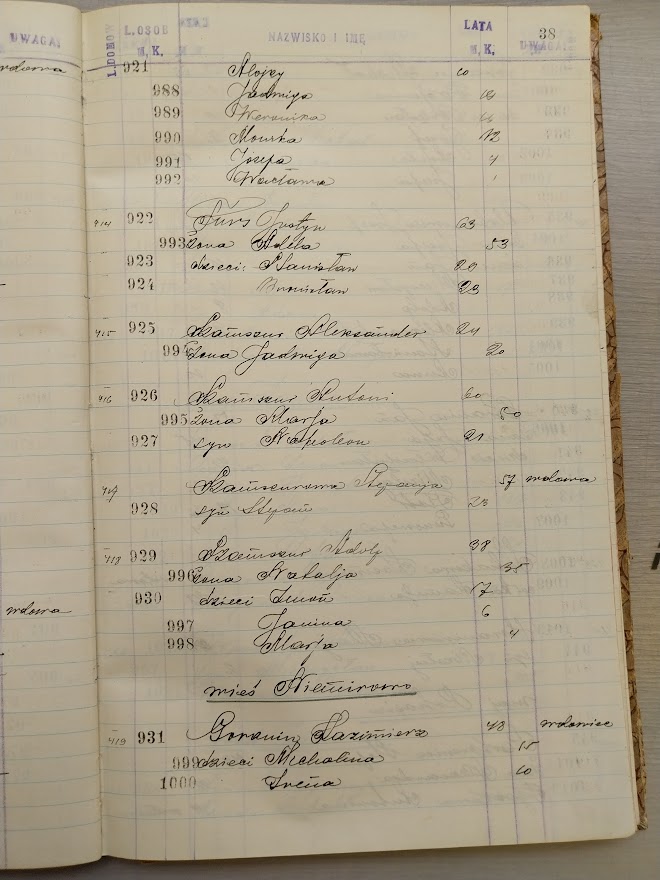 UWAGA:
wdowa
wdowa
38
L. DOMÓW L. OSOB NAZWISKO I IMĘ LATA
M. K. M. K. UWAGA:
921 Alojzy 10
988 Jadwiga
989 Weronika
990 12
991 Józefa
992 Wacława
414 922 Justyn 63
993 żona Adela 53
923 dzieci: Stanisław
924 Bronisław 23
415 925 Aleksander
żona Jadwiga 20
416 926 Antoni 60
995 żona Marja 50
927 syn Napoleon 21
417 Stefanja 57 wdowa
928 syn Stefan 23
418 929 Adolf 38
996 żona Natalja 35
930 dzieci Zenon 17
997 Janina 6
998 Marja 4
wieś Niemirowo
419 931 Kazimierz 48 wdowiec
999 dzieci Michalina 15
1000 Irena 10